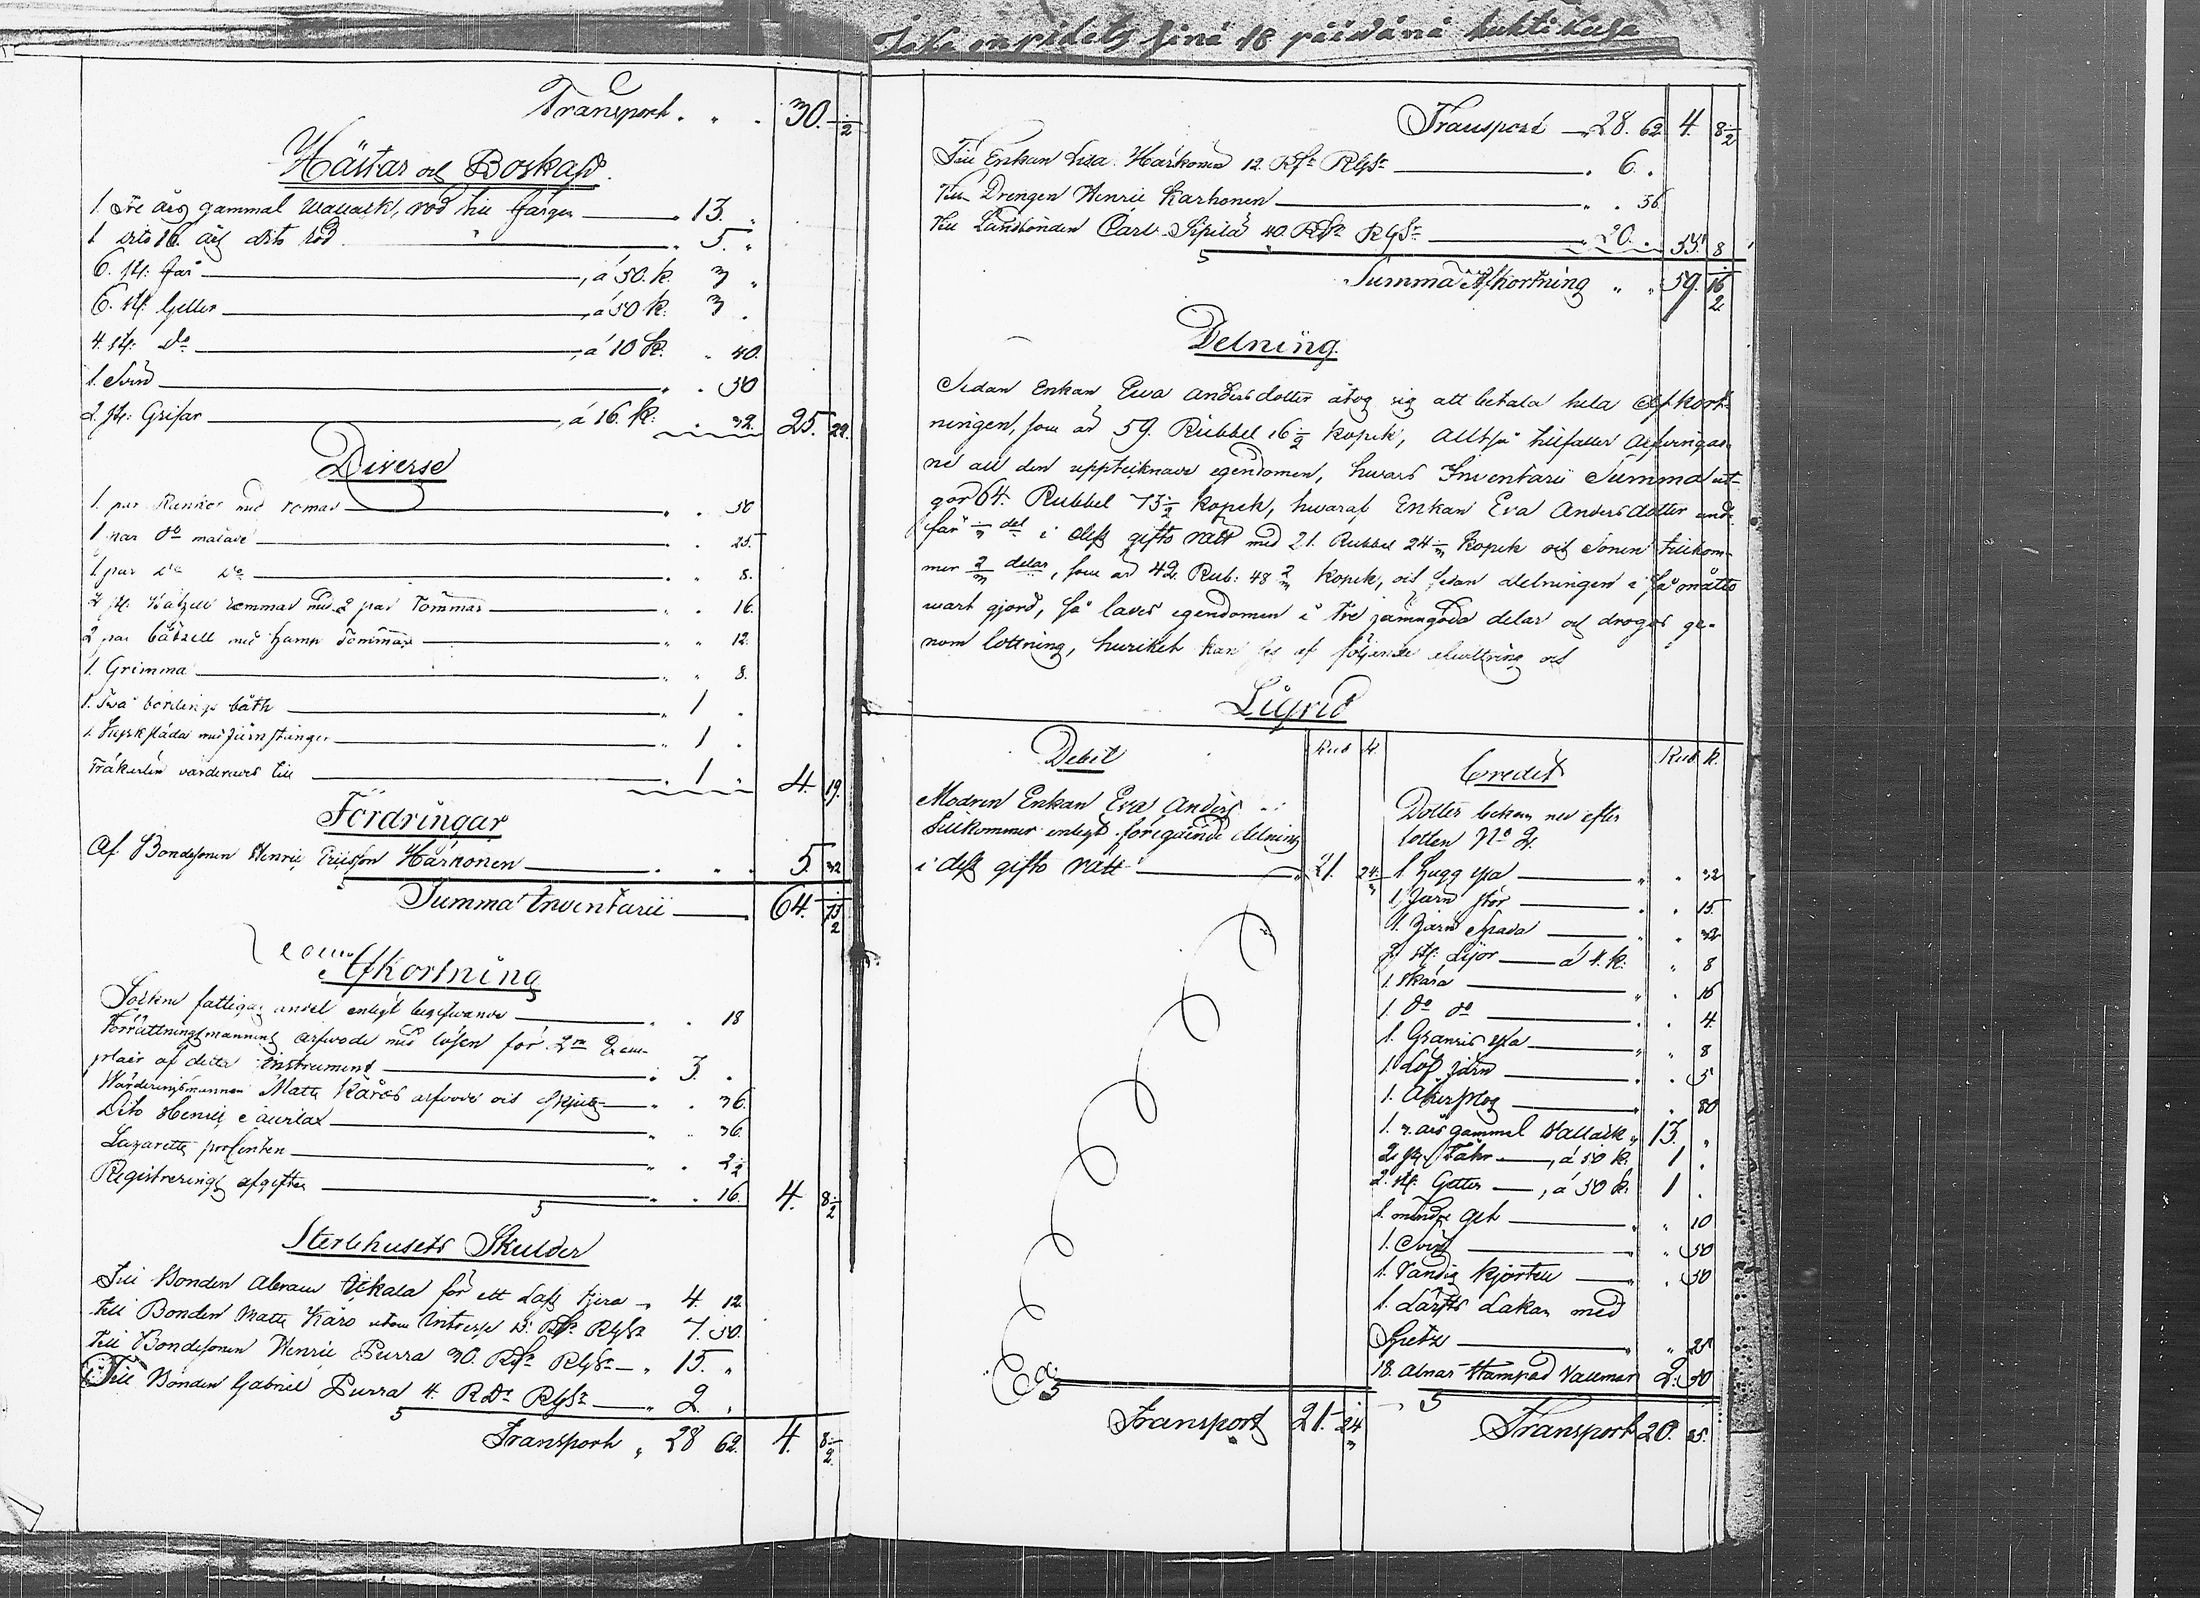 Transport. " . 30. 1/2
Hästar och Boskap.
1. tre års gammal Wallack, röd till färgen " 13. "
1 dito 16. års dito röd " " 5. "
6. st: får , á 50. k. 3 "
6. st: Getter , á 50 k. 3 .
4. st: do , á 10 k. " 40.
1. Svin " . 50
2. st: Grisar , á 16. k: . 32. 25. 22.
Diverse
1. par med " . 50
1 par do målade " . 25.
1. par do do " . 8.
2 st: remmar med 2 par Tömmar " . 16.
2 par med hamp Tömmar " " 12.
1. Grimma " " 8.
1. Två bördings båth " 1 .
1. med Järn stänger " 1 .
Träkärlen värderades till . 1 " 4. 19.
Fordringar
Af Bondesonen Henric Ericsson Härkönen . " . 5. 32
Summa Inventarii 64. 73 1/2
Afkortning
Sockne fattigas andel enligt begifvande " . 18
Förrättningsmannens arfwode med lösen för 2ne Exem-
plair af detta instrument . 3. .
Wärderingsmannen Matts Käros arfvode och skjuts " . 36.
Dito Henric Caurlax " . 36.
Lazaretts porCenten " . 2 1/2
Registrerings afgiften " . 16. 4. 8 1/2
Sterbhusets Skulder
Till Bonden Abram för ett Lass tjera " 4. 12.
till Bonden Matts Käro utom Intresse 15. Rd. Rgs: 7. 50.
till Bondesonen Henric Purra 30. Rd. Rgs: " 15. "
Till Bonden Gabriel Purra 4. Rd. Rgs: " 2. "
Transport " 28 62. 4. 8 1/2
18 päivänä huhtikuta
Transport 28. 62. 4. 8 1/2
Till Enkan Lisa Härkönen 12. Rd. Rgs: " 6. .
till Drengen Henric Karhonen " . 56
till Landbonden Carl 40. Rd. Rgs: " 20. . 55. 8
Summa Afkortning " " 59. 16 1/2
Delning.
Sedan Enkan Ewa Andersdotter åtog sig att betala hela Afkort-
ningen, som är 59. Rubbel 16 1/2 kopek, Alltså tillfaller Arfvingar-
ne all den uppteknade egendomen, hwars Inventarii Summa ut-
gör 64. Rubbel 73 1/2 kopek, hwaraf Enkan Eva Andersdotter
får 1/3 del i dess gifto rätt med 21. Rubbel 24 1/3 kopek och Sonen tillkom-
mer 2/3 delar, som är 42. Rub: 48 2/3 kopek, och sedan delningen i så måtto
wart gjord, så lades egendomen i tre jämngoda delar och drogos ge-
nom lottning, hvilket kan ses af följande och
Liqvid
Debet Rub k.
Modren Enkan Eva Anders
tillkommer enligt föregående delning
i dess gifto rätt " 21. 24 1/3
Transport 21. 24 1/3
Credit Rub k.
Dotter bekom ned efter
lotten No 2.
1. hugg yxa " " 32
1. Järn stör " . 15.
1. Järn Spada " . 32
2 st: Lijor á 4. k: " 8
1. Skära " . 15
1. do do " . 4.
1. Granris yxa " " 8
1. Löf järn " . 5
1. Åkerplog " . 80
1. 3. års gammal Wallack " 13. "
2. st: Fåhr , á 50 k. 1 .
2. st: Getter , á 50 k. 1 .
1. mindre get " " 10
1. Svin " . 50
1. Randig kjortell " . 50
1. Lärfts Lakan med
Spets " " 25
18. Alnar Stampad Vallmar 2. 50
Transport 20. 25.